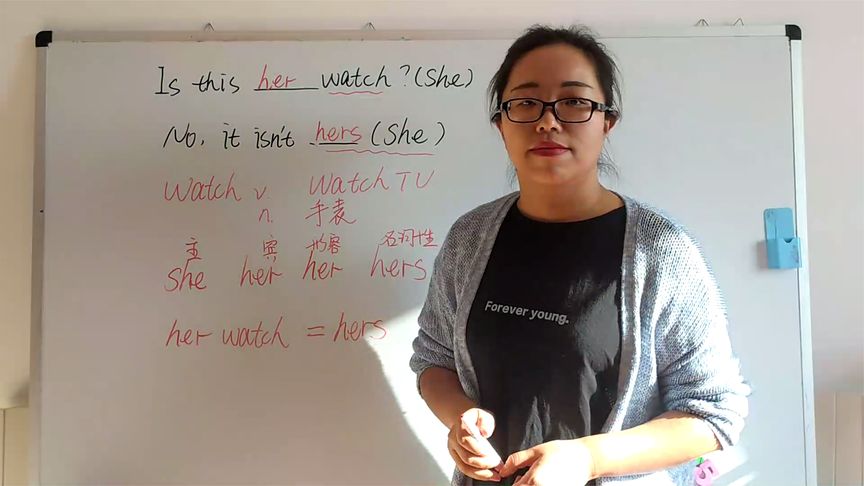 Is this her watch?(She)
No, it isn't hers (She)
watch v. watch TV
n. 手表
主 宾 形容 名词性
she her her hers
her watch = hers
Forever young.